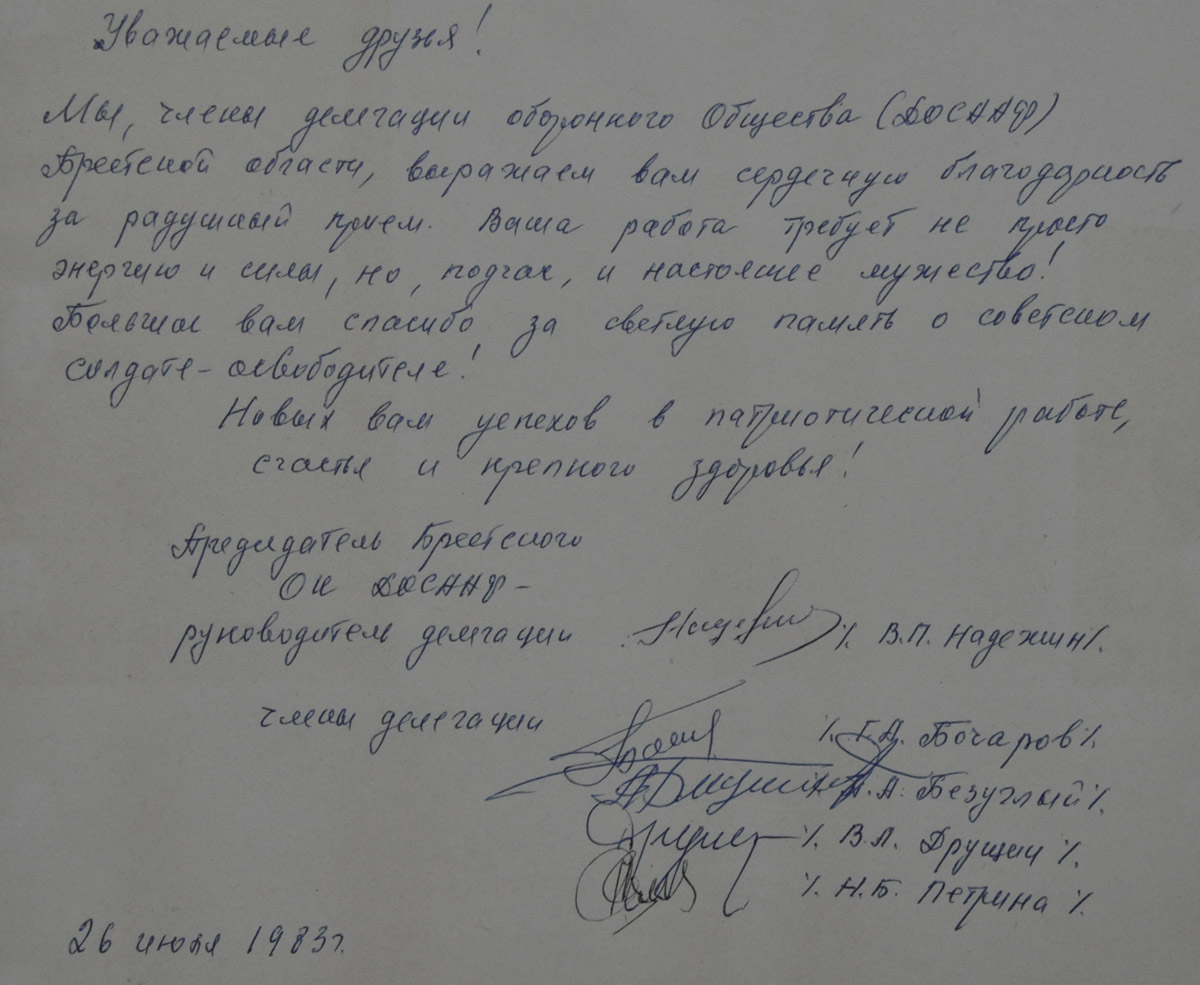 Уважаемые друзья!
Мы, члены делегации оборонного Общества (ДОСААФ)
Брестской области, выражаем вам сердечную благодарность
за радушный прием. Ваша работа требует не просто
энергию и силы, но, подчас, и настоящее мужество!
Большое вам спасибо за светлую память о советском
солдате-освободителе!
Новых вам успехов в патриотической работе,
счастья и крепкого здоровья!
Председатель Брестского
ОК ДОСААФ-
руководитель делегации /. В.П. Надежкин/.
члены делегации /. Г.Д. Бочаров/.
А. Безуглый/.
/. В.Л. Друщиц /.
/. Н.Б. Петрина /.
26 июля 1983г.